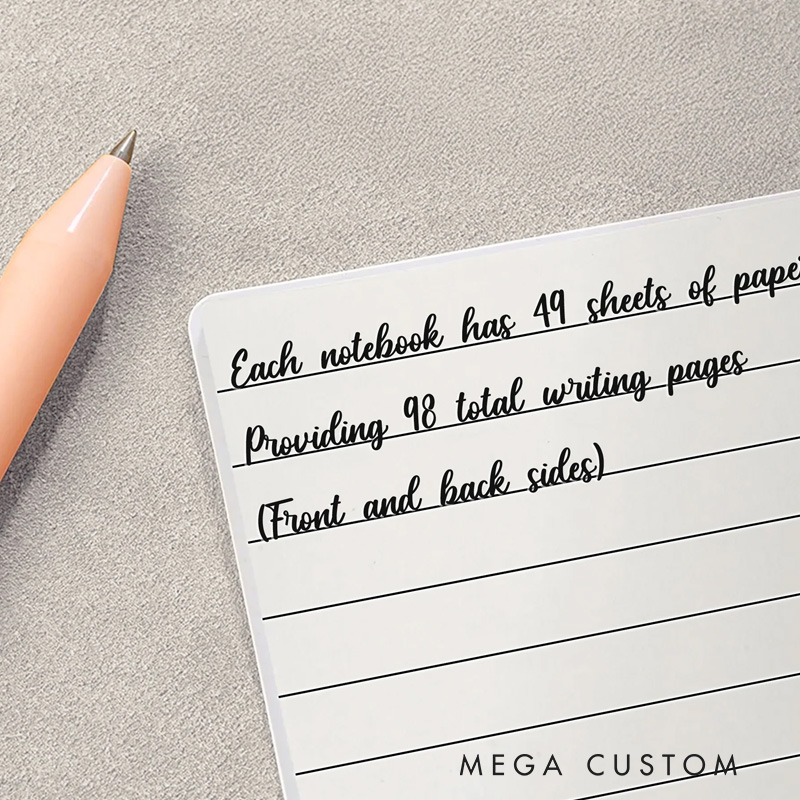 Each notebook has 49 sheets of paper
Providing 98 total writing pages
(Front and back sides)
MEGA CUSTOM